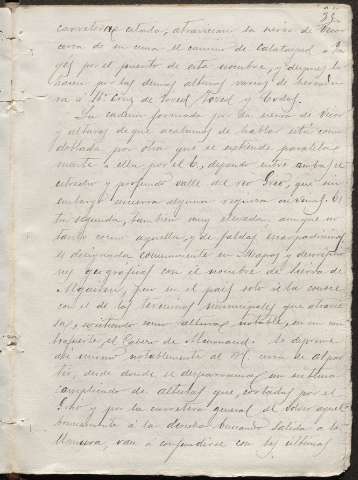 carretera citada, atraviesan la sierra de Vicor
cerca de su cima el camino de Calatayud á
por el puerto de este nombre, y despues lo
hacen por las demas alturas varios de herradu-
ra á Sta. Cruz de Tobed, Tobed, y Codos.
La cadena formada por la sierra de Vicor
y alturas de que acabamos de hablar está como
doblada por otra que se extiende paralela-
mente á ella por el E, dejando entre ambas el
estrecho y profundo valle del rio Grio, que sin
embargo encierra alguna riqueza en vinos. Es
ta segunda, tambien muy elevada aunque no
tanto como aquella, y de faldas
es designada comunmente en Mapas y descripcio
nes geográficas con el nombre de Sierra de
Algairen, pero en el pais solo se la conoce
con el de los terminos municipales que atravie
sa, existiendo como alturas notable, en
el Cabezo de Se deprime
notablemente al N. cerca de
desde donde se desparraman
de alturas que, cortadas por el
Grio y por la carretera general de
á la derecha buscando salida á la
llanura, van á confundirse con las ultimas